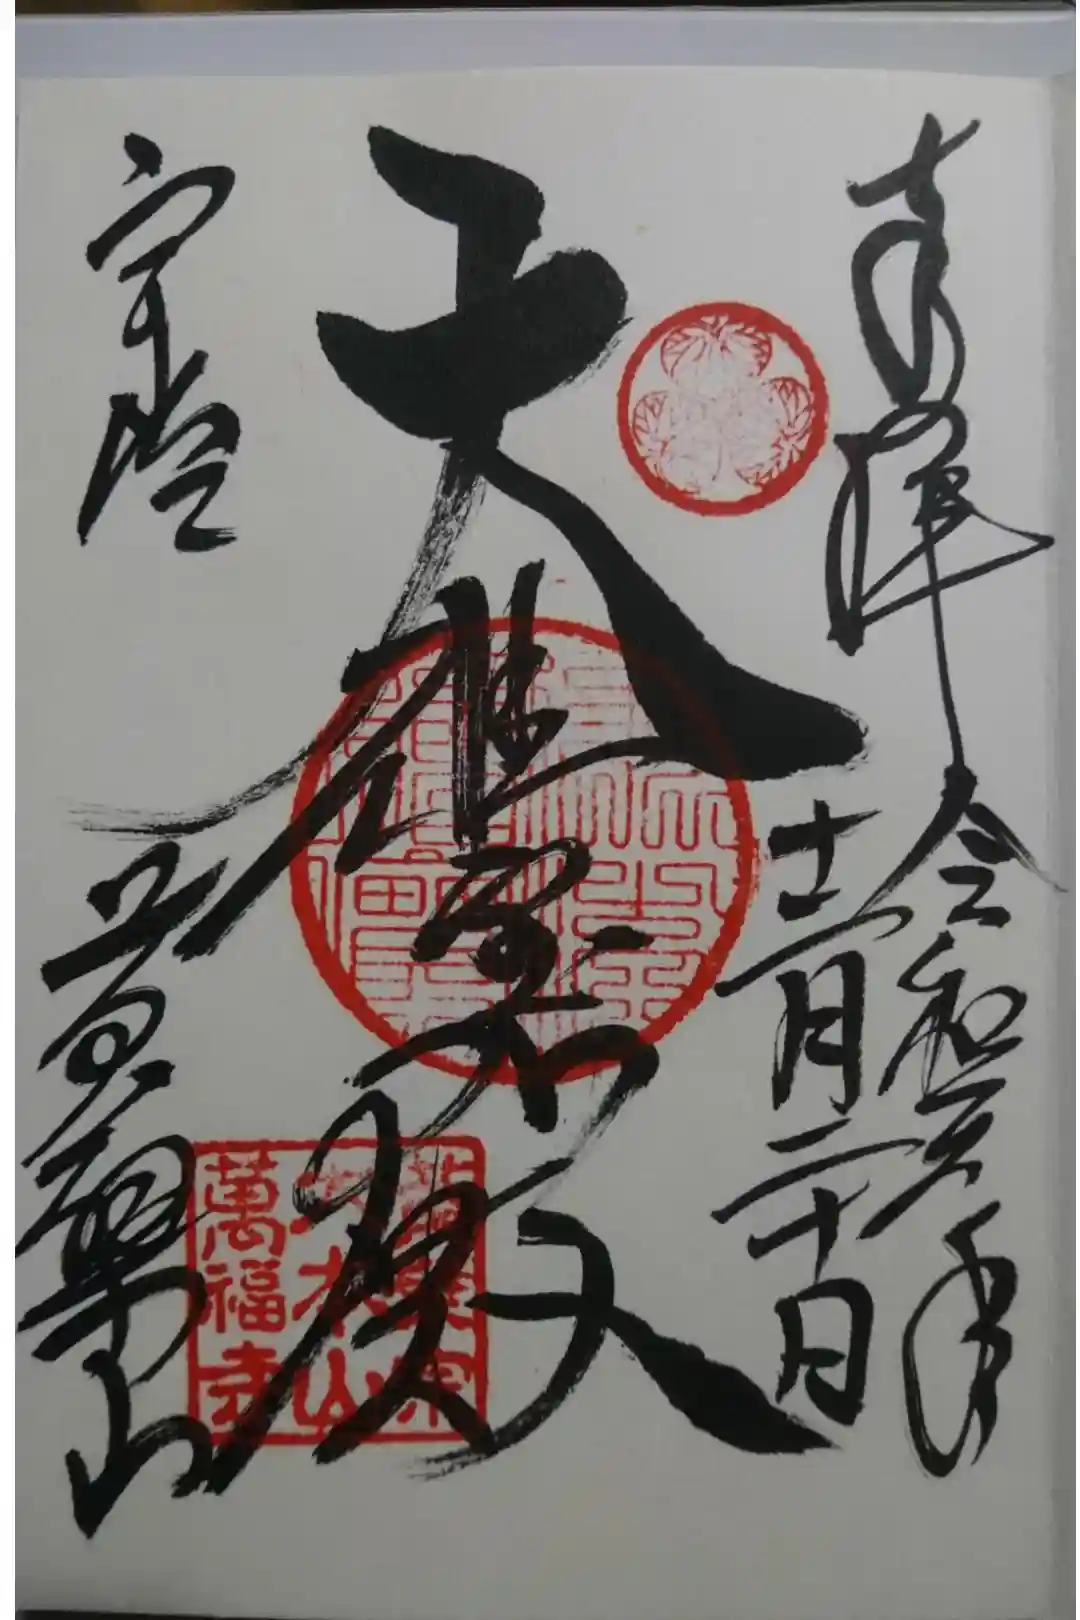 奉拝 令和元年
十一月二十日
大雄宝殿
宇治
黄檗山
黄檗宗
大本山
萬福寺